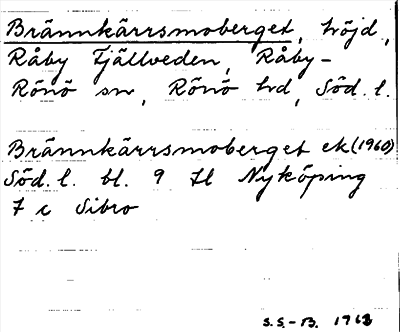 Brännkärrsmoberget, höjd,
Råby Fjällveden, Råby-
Rönö sn, Rönö hd, Söd. l.
Brännkärrsmoberget ek (1960)
Söd. l. bl. 9 H Nyköping
7 c Sibro
S.S.-B. 1963